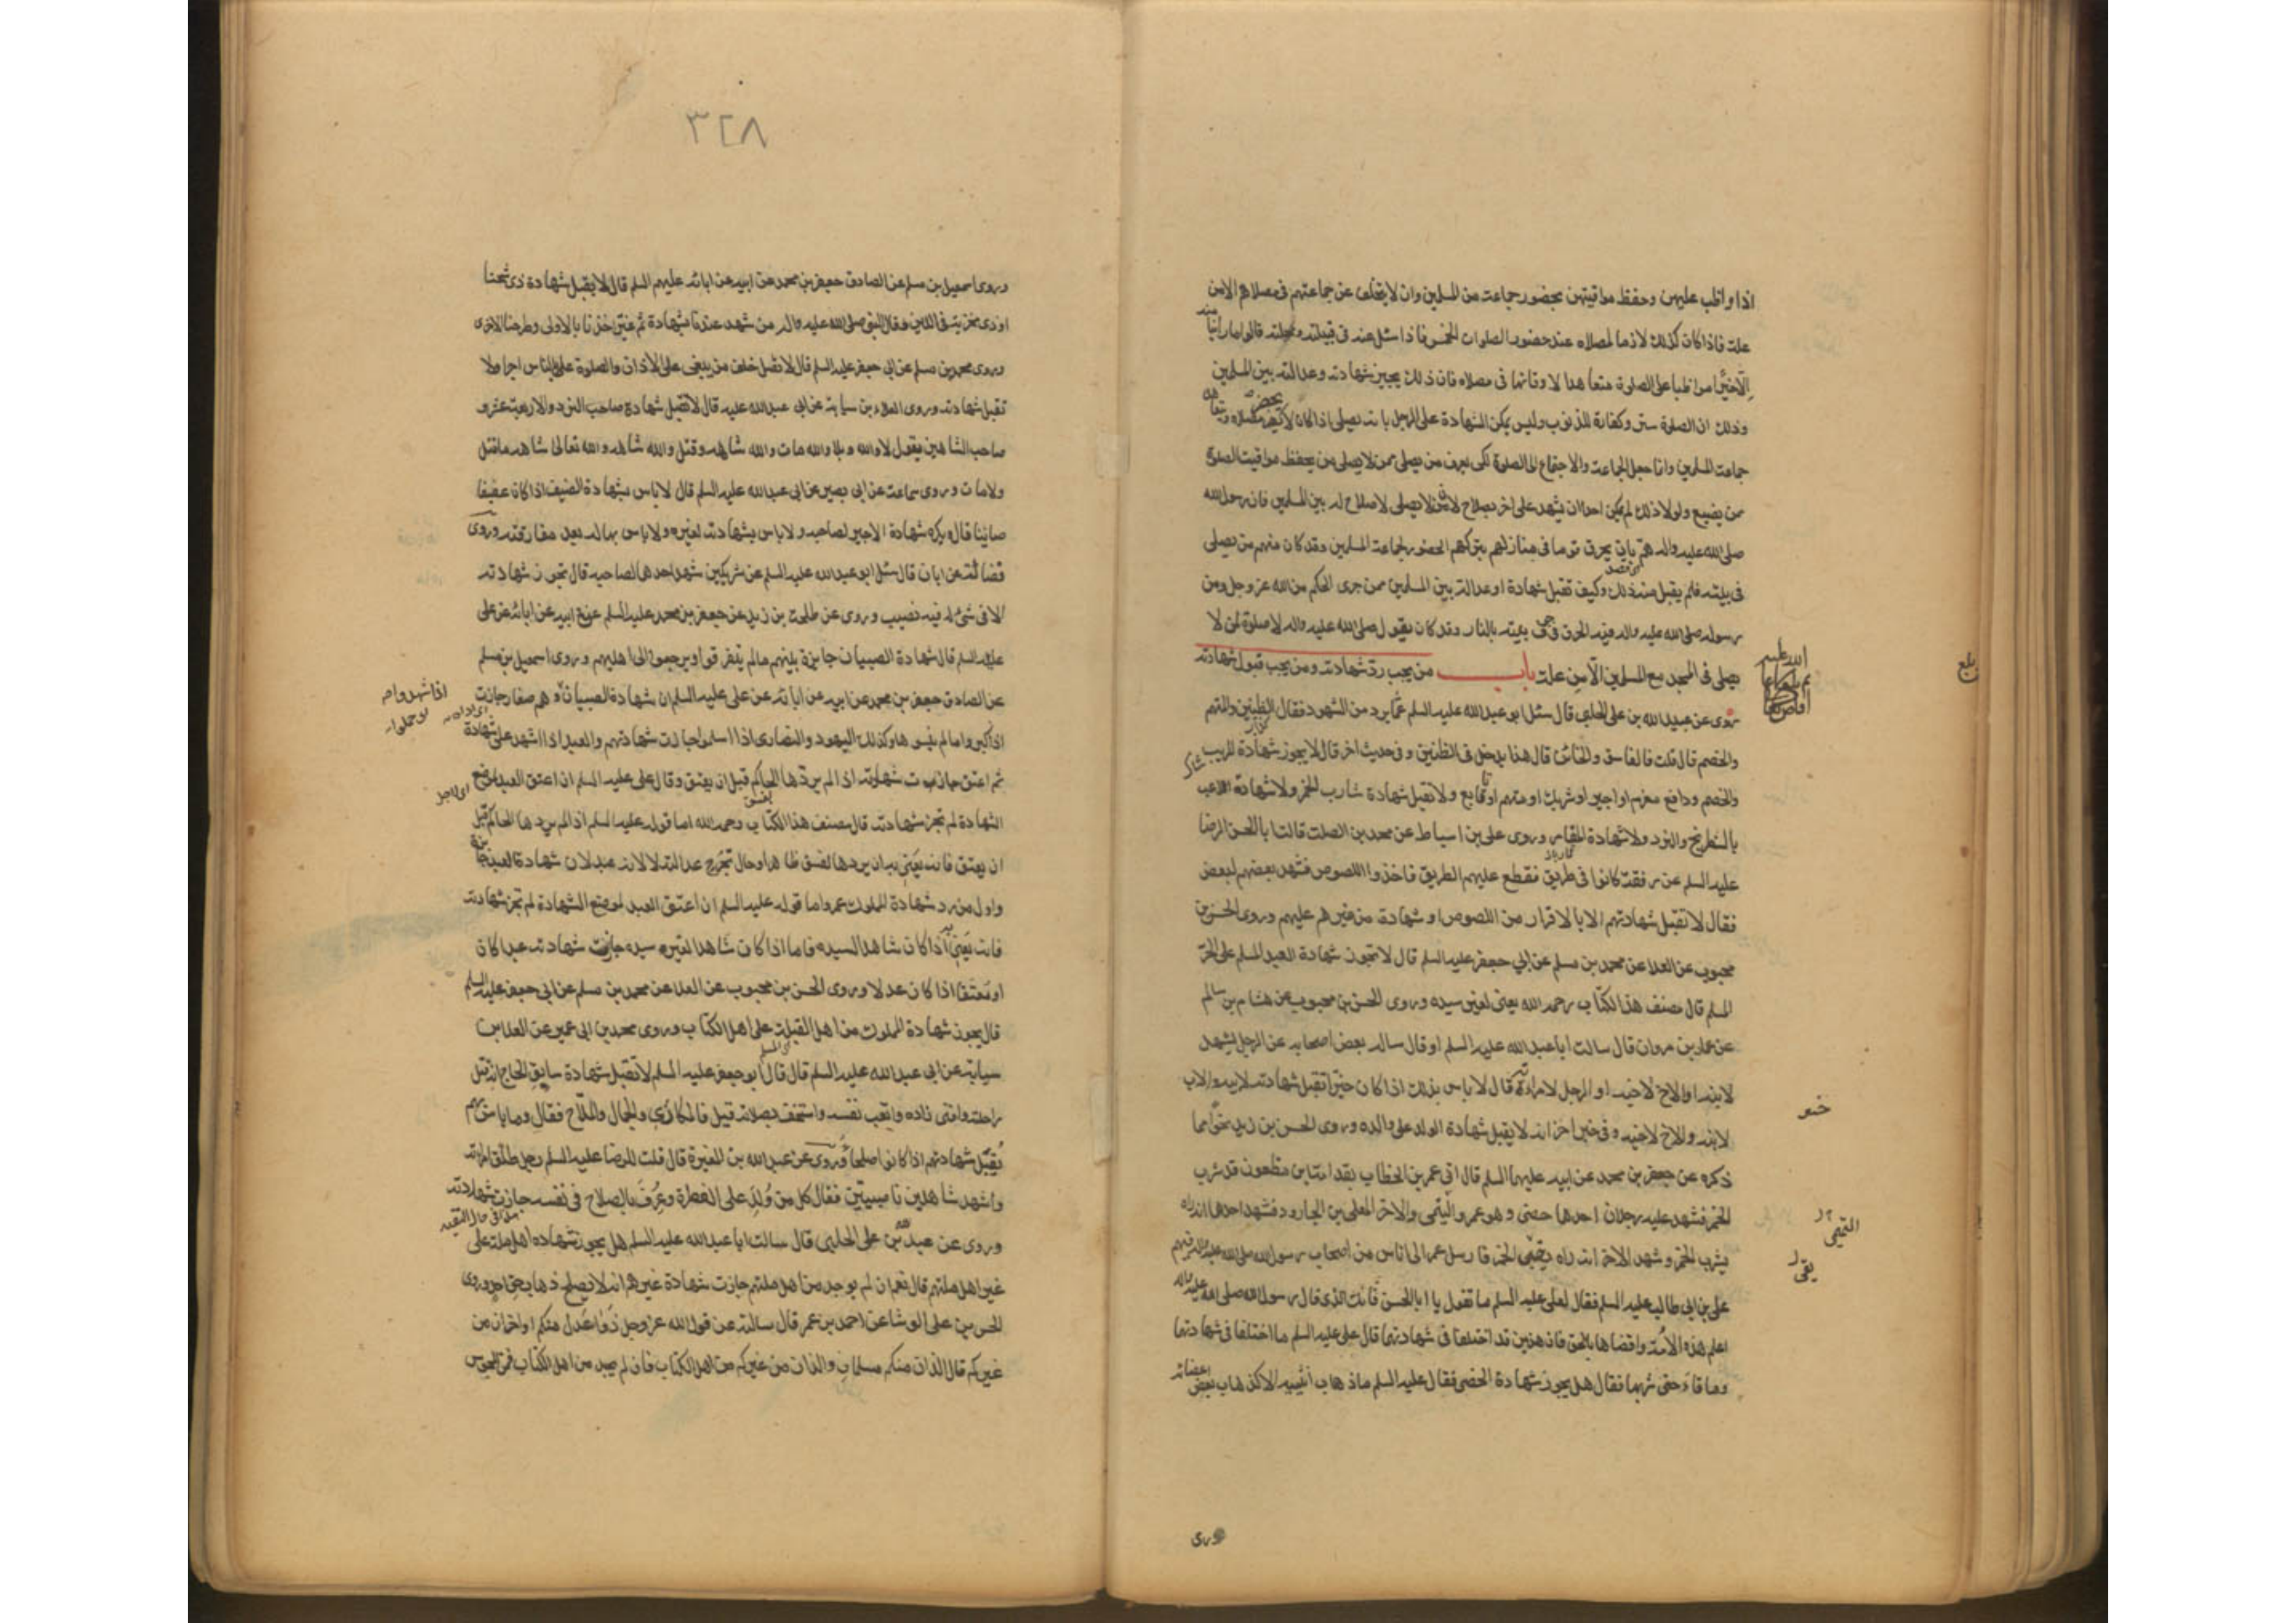 اذا واظب عليهن وحفظ مواقيتهن بحضور جماعت من المسلمين وان لا يتخلف عن جماعتهم فى مصلاهم الا من
علة فاذا كان كذلك لازما لمصلاه عند حضور الصلوات الخمس فاذا سئل عنه فى قبيلته ومحلته قالوا ما راينا منه
الا خيرا مواظبا على الصلوة متعاهدا لاوقاتها فى مصلاه فان ذلك يجيز شهادته وعدالته بين المسلمين
وذلك ان الصلوة ستر وكفارة للذنوب وليس يمكن الشهادة على الرجل بانه يصلى اذا كان لا يحضر مصلاه ويتعاهد
جماعة المسلمين وانما جعل الجماعة والاجتماع الى الصلوة لكى يعرف من يصلى ممن لا يصلى ومن يحفظ مواقيت الصلوة
ممن يضيع ولولا ذلك لم يمكن احدا ان يشهد على اخر بصلاح لان من لا يصلى لا صلاح له بين المسلمين فان رسول الله
صلى الله عليه واله هم بان يحرق قوما فى منازلهم بتركهم الحضور لجماعة المسلمين وقد كان منهم من يصلى
فى بيته فلم يقبل منه ذلك وكيف تقبل شهادة او عدالة بين المسلمين ممن جرى الحكم من الله عز وجل ومن
رسوله صلى الله عليه واله فيه الحرق فى جوف بيته بالنار وقد كان يقول صلى الله عليه واله لا صلوة لمن لا
يصلى فى المسجد مع المسلمين الا من علة باب من يجب رد شهادته ومن يجب قبول شهادته
روى عن عبيد الله بن على الحلبى قال سئل ابو عبد الله عليه السلم عما يرد من الشهود فقال الظنين والمتهم
والخصم قال قلت فالفاسق والخائن قال هذا يدخل فى الظنين وفى حديث اخر قال لا يجوز شهادة المريب
والخصم ودافع مغرم او اجير او شريك او متهم او تابع ولا تقبل شهادة شارب الخمر ولا شهادة اللاعب
بالشطرنج والنرد ولا شهادة المقامر وروى على بن اسباط عن محمد بن الصلت قال سالت ابا الحسن الرضا
عليه السلم عن رفقة كانوا فى طريق فقطع عليهم الطريق فاخذوا اللصوص فشهد بعضهم لبعض
فقال لا تقبل شهادتهم الا بالاقرار من اللصوص او شهادة من غيرهم عليهم وروى الحسن بن
محبوب عن العلا عن محمد بن مسلم عن ابى جعفر عليه السلم قال لا تجوز شهادة العبد المسلم على الحر
المسلم قال مصنف هذا الكتاب رحمه الله يعنى لغير سيده وروى الحسن بن محبوب عن هشام بن سالم
عن عمار بن مروان قال سالت ابا عبد الله عليه السلم او قال ساله بعض اصحابه عن الرجل يشهد
لابنه او الاخ لاخيه او الرجل لامراته قال لا باس بذلك اذا كان خيرا تقبل شهادته لابيه والاب
لابنه والاخ لاخيه وفى خبر اخر انه لا يقبل شهادة الولد على والده وروى الحسن بن زيد نحوا مما
ذكره عن جعفر بن محمد عن ابيه عليهما السلم قال اتى عمر بن الخطاب بقدامة بن مظعون قد شرب
الخمر فشهد عليه رجلان احدهما خصى وهو عمرو التيمى والاخر المعلى بن الجارود فشهد احدهما انه راه
يشرب الخمر وشهد الاخر انه راه يقئ الخمر فارسل عمر الى اناس من اصحاب رسول الله صلى الله عليه واله فيهم
على بن ابى طالب عليه السلم فقال لعلى عليه السلم ما تقول يا ابا الحسن فانت الذى قال رسول الله صلى الله عليه واله
اعلم هذه الامة واقضاها بالحق فان هذين قد اختلفا فى شهادتهما قال على عليه السلم ما اختلفا فى شهادتهما
وما قاء حتى شربها فقال هل يجوز شهادة الخصى فقال عليه السلم ما ذهاب انثييه الا كذهاب بعض اعضائه
بلغ
التميمى
وروى
٣٢٨
وروى اسمعيل بن مسلم عن الصادق جعفر بن محمد عن ابيه عن ابائه عليهم السلم قال لا يقبل شهادة ذى شحنا
او ذى مخزية فى الدين وقال النبى صلى الله عليه واله من شهد عندنا بشهادة ثم غير اخذنا بالاولى وطرحنا الاخرى
وروى محمد بن مسلم عن ابى جعفر عليه السلم قال لا تصل خلف من يبغى على الاذان والصلوة على الناس اجرا ولا
تقبل شهادته وروى العلاء بن سيابة عن ابى عبد الله عليه قال لا تقبل شهادة صاحب النرد والاربعة عشر و
صاحب الشاهين يقول لا والله وبلا والله مات والله شاهه وقتل والله شاهه والله تعالى شاهه ما قتل
ولا مات وروى سماعة عن ابى بصير عن ابى عبد الله عليه السلم قال لا باس بشهادة الضيف اذا كان عفيفا
صائنا قال ويكره شهادة الاجير لصاحبه ولا باس بشهادته لغيره ولا باس بها له بعد مفارقته وروى
فضالة عن ابان قال سئل ابو عبد الله عليه السلم عن شريكين شهد احدهما لصاحبه قال تجوز شهادته
الا فى شئ له فيه نصيب وروى عن طلحة بن زيد عن جعفر بن محمد عليه السلم عن ابيه عن ابائه عن على
عليه السلم قال شهادة الصبيان جايزة بينهم ما لم يتفرقوا ويرجعوا الى اهليهم وروى اسمعيل بن مسلم
عن الصادق جعفر بن محمد عن ابيه عن ابائه عن على عليه السلم ان شهادة الصبيان وهم صغار جازت
اذا كبروا ما لم ينسوها وكذلك اليهود والنصارى اذا اسلموا جازت شهادتهم والعبد اذا اشهد على شهادة
ثم اعتق جازت شهادته اذا لم يردها الحاكم قبل ان يعتق وقال على عليه السلم ان اعتق العبد لموضع
الشهادة لم تجز شهادته قال مصنف هذا الكتاب رحمه الله اما قوله عليه السلم اذا لم يردها الحاكم قبل
ان يعتق فانه يعنى به ان يردها لفسق ظاهر او حال تجرح عدالته لا لانه عبد لان شهادة العبد جائزة
واول من رد شهادة المملوك عمر واما قوله عليه السلم ان اعتق العبد لموضع الشهادة لم تجز شهادته
فانه يعنى به اذا كان شاهدا لسيده فاما اذا كان شاهدا لغير سيده جازت شهادته عبدا كان
او معتقا اذا كان عدلا وروى الحسن بن محبوب عن العلا عن محمد بن مسلم عن ابى جعفر عليه السلم
قال يجوز شهادة المملوك من اهل القبلة على اهل الكتاب وروى محمد بن ابى عمير عن العلا بن
سيابة عن ابى عبد الله عليه السلم قال قال ابو جعفر عليه السلم لا تقبل شهادة سابق الحاج انه قتل
راحلته وافنى زاده واتعب نفسه واستخف بصلاته قيل فالمكارى والجمال والملاح فقال وما باس بهم
تقبل شهادتهم اذا كانوا صلحا وروى عن عبد الله بن المغيرة قال قلت للرضا عليه السلم رجل طلق امراته
واشهد شاهدين ناصبيين فقال كل من ولد على الفطرة وعرف بالصلاح فى نفسه جازت شهادته
وروى عن عبيد الله بن على الحلبى قال سالت ابا عبد الله عليه السلم هل يجوز شهادة اهل ملة على
غير اهل ملتهم قال نعم ان لم يوجد من اهل ملتهم جازت شهادة غيرهم انه لا يصلح ذهاب حق احد وروى
الحسن بن على الوشا عن احمد بن عمر قال سالته عن قول الله عز وجل ذوا عدل منكم او اخران من
غيركم قال اللذان منكم مسلمان واللذان من غيركم من اهل الكتاب فان لم يجد من اهل الكتاب فمن المجوس